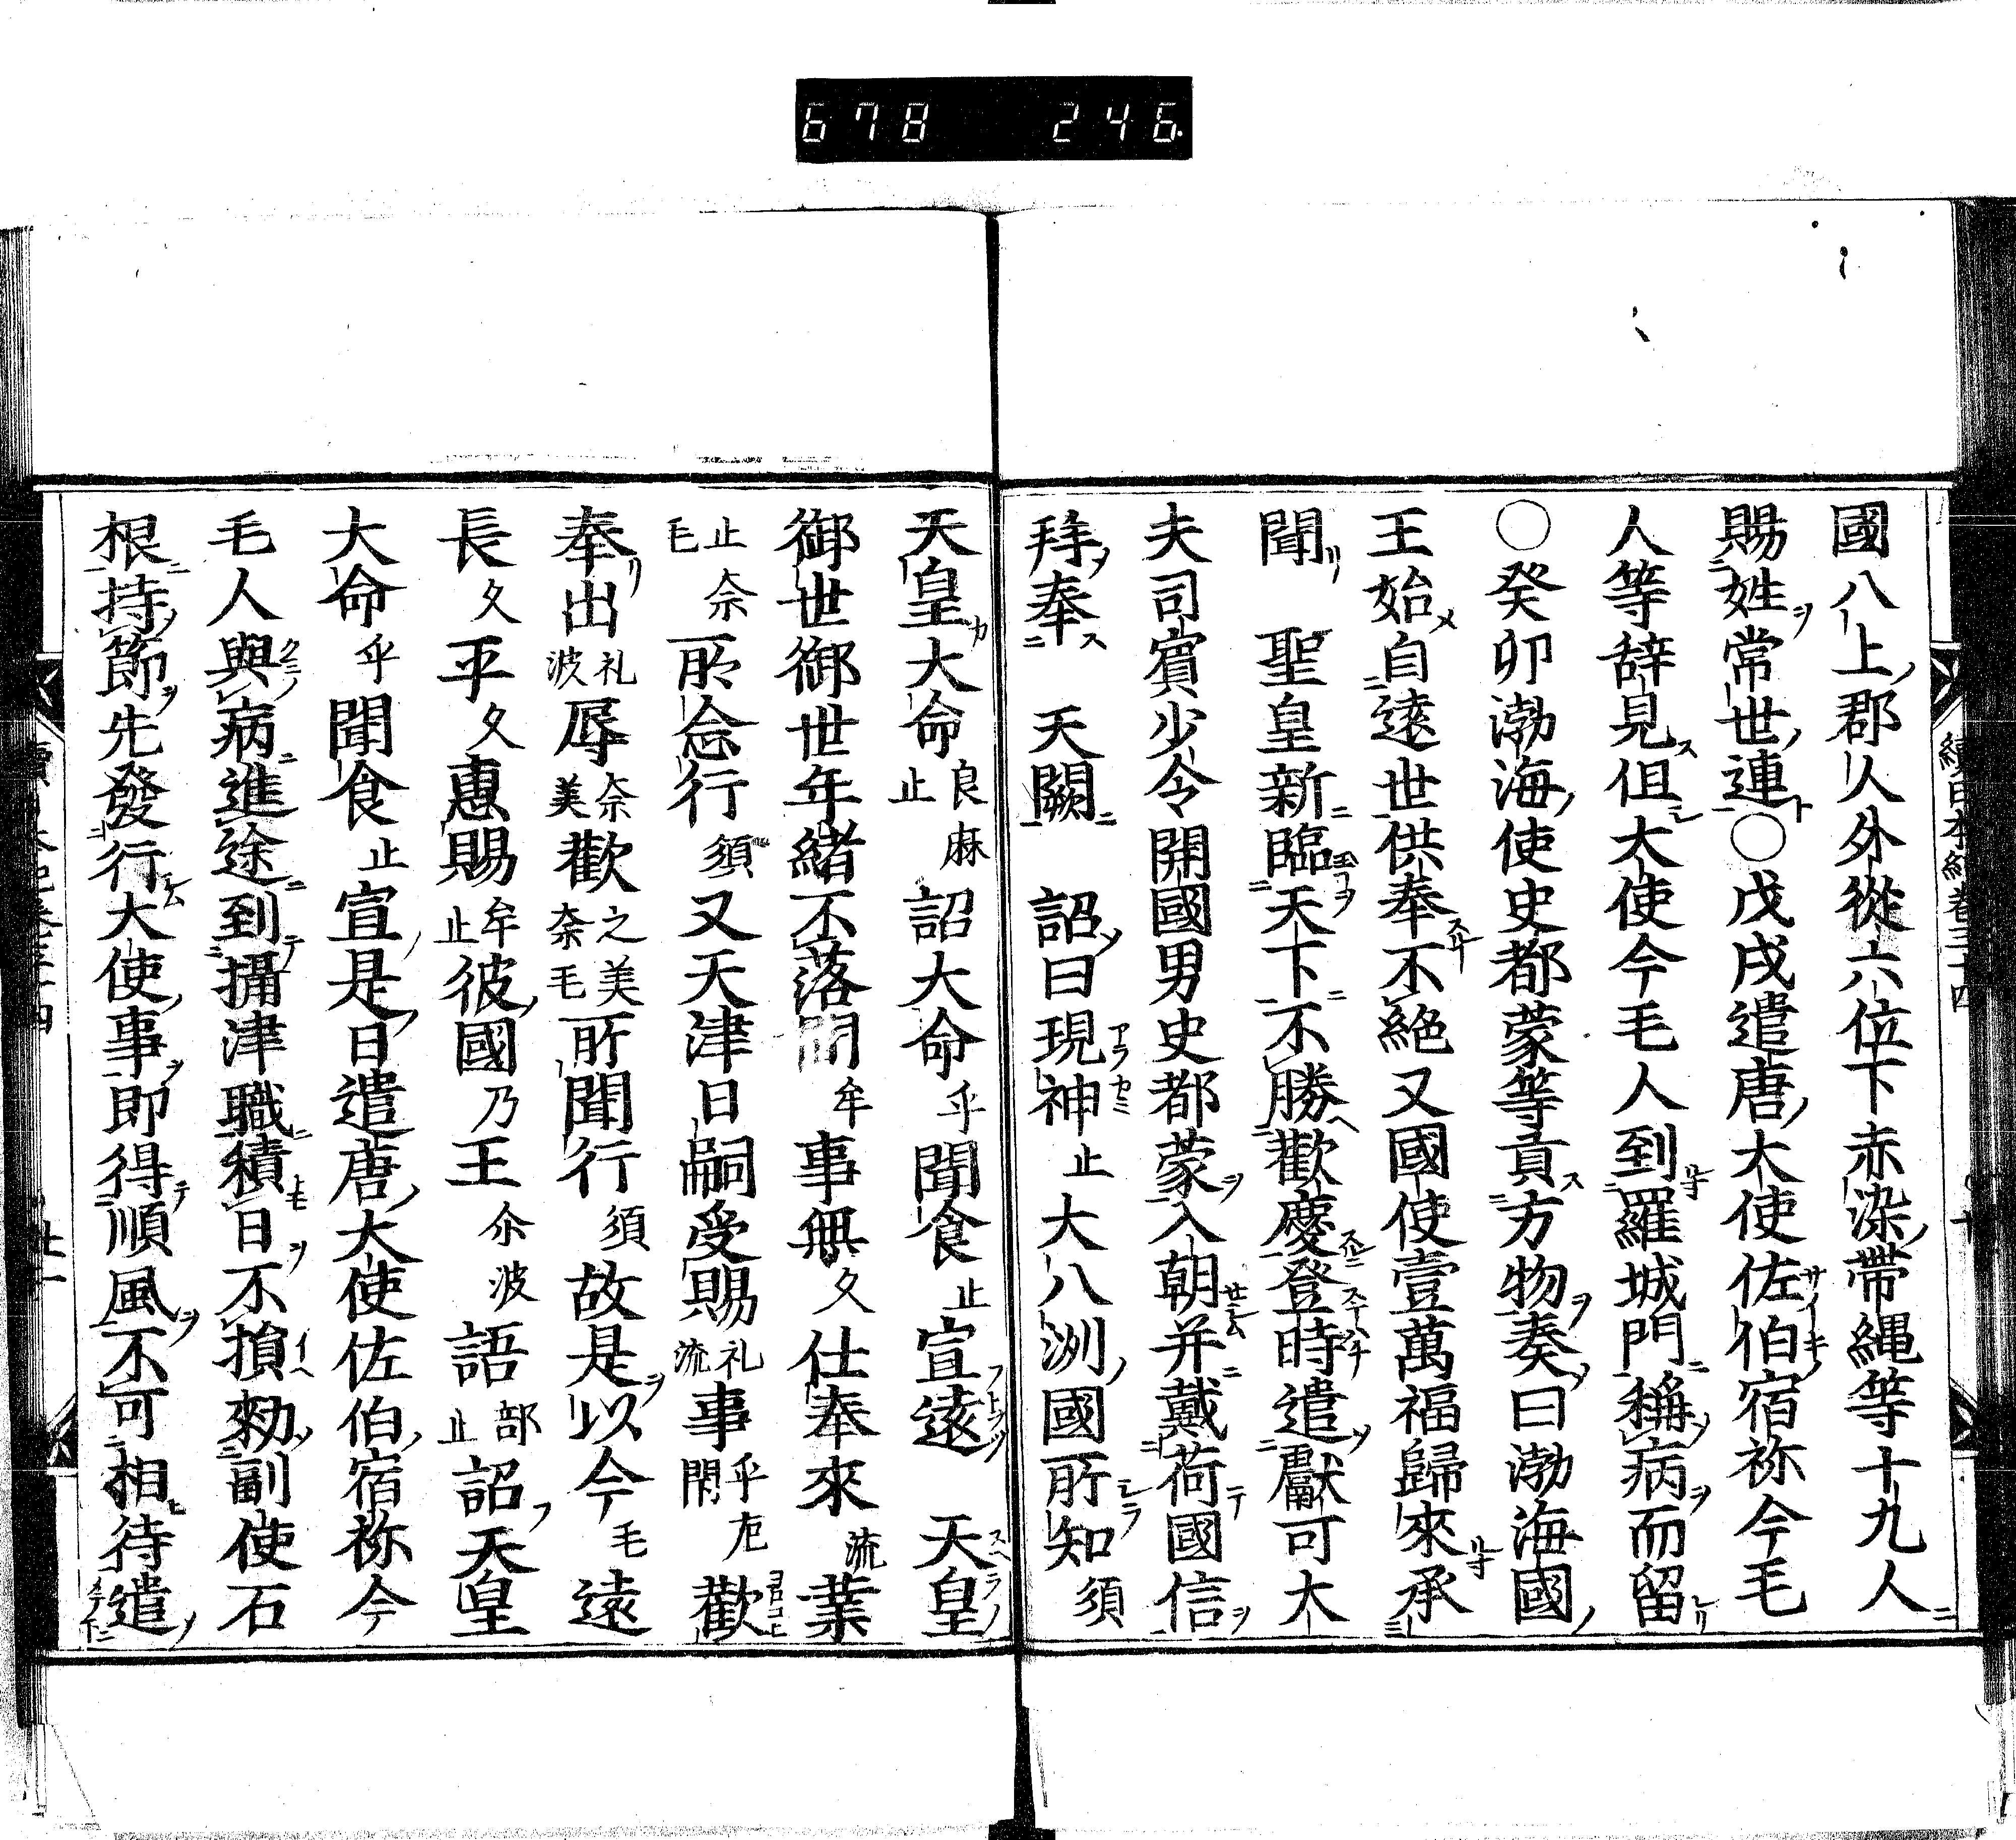 678 246
國八上郡人外從六位下赤染帶繩等十九人
賜姓常世連○戊戌遣唐大使佐伯宿祢今毛
人等辞見但大使今毛人到羅城門稱病而留
○癸卯渤海使史都蒙等貢方物奏曰渤海國
王始自遠世供奉不絶又國使壹萬福歸來承
聞聖皇新臨天下不勝歡慶登時遣獻可大
夫司賓少令開國男史都蒙入朝并戴荷國信
拜奉天闕詔曰現神止大八洲國所知須
天皇大命良麻止詔大命乎聞食止宣遠天皇
御世御世年緒不落間牟事無久仕奉來流業
止奈毛所念行須又天津日嗣受賜礼流事乎閇左歡
奉出礼波辱奈美歡之美奈毛所聞行須故是以今毛遠
長久平久惠賜牟止彼國乃王尒波語部止詔天皇
大命乎聞食止宣是日遣唐大使佐伯宿祢今
毛人與病進途到攝津職積日不損勑副使石
根持節先發行大使事即得順風不可相待遣